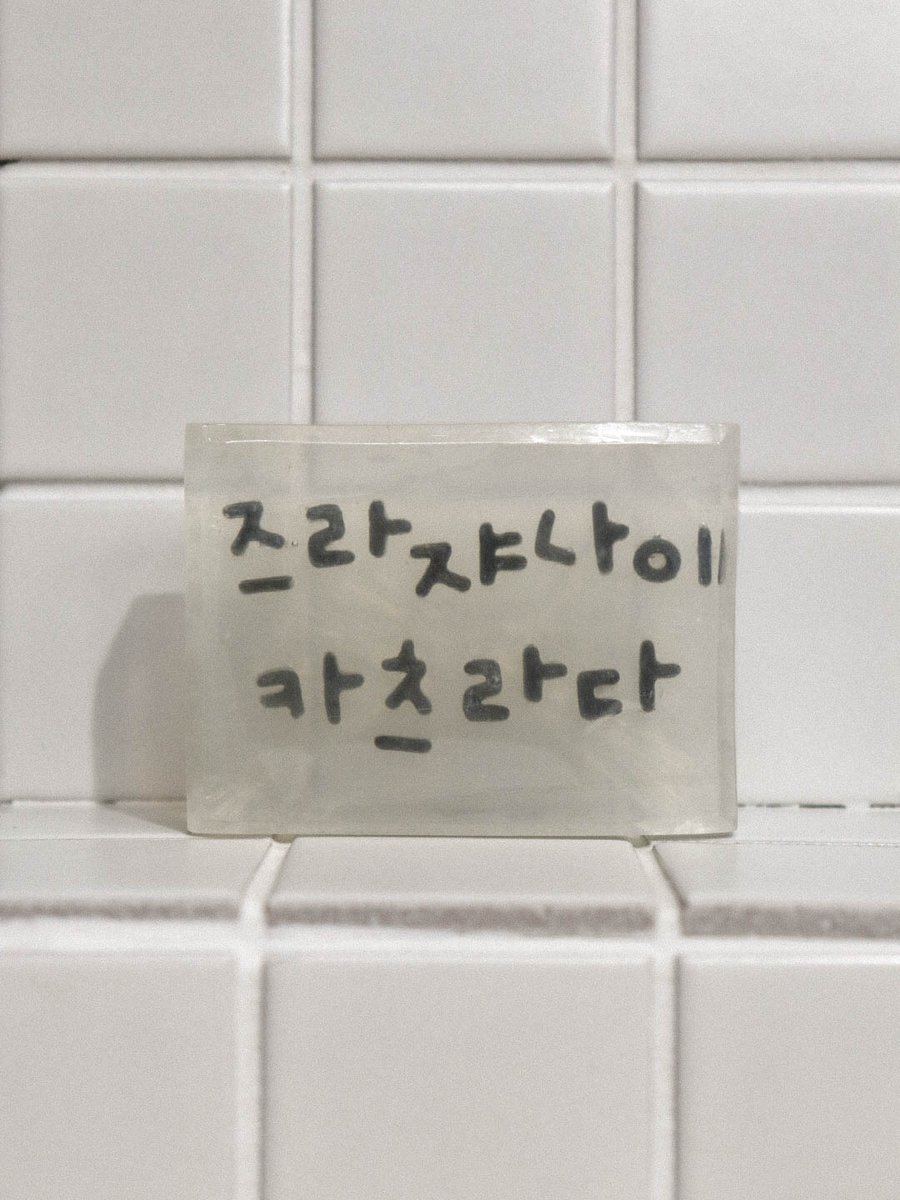 즈라쟈나이
카츠라다